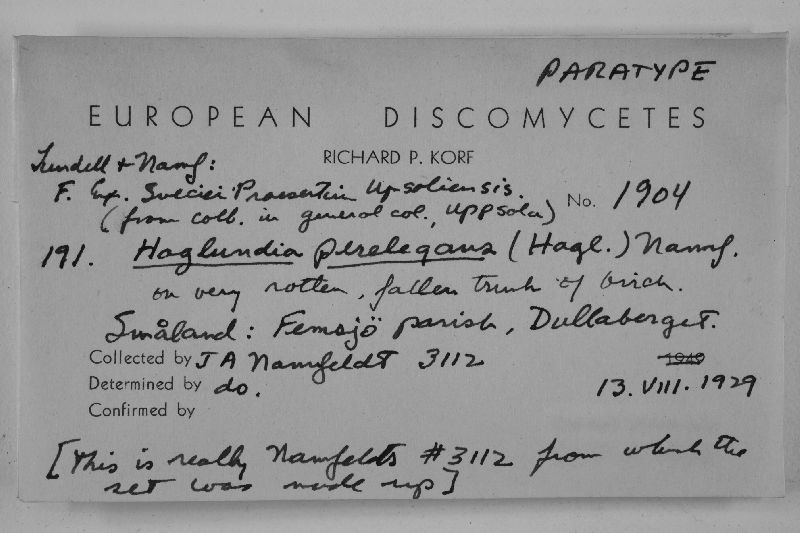 PARATYPE
EUROPEAN DISCOMYCETES
RICHARD P. KORF
Lundell & Nannf:
F. Exs. Suecici Praesertim Upsaliensis.
(from coll. in general col., Uppsala)
No. 1904
191. Haglundia perelegans (Hagl.) Nannf.
on very rotten, fallen trunk of birch.
Småland: Femsjö parish, Dullaberget.
Collected by JA Nannfeldt 3112
1949
Determined by do.
13. VIII. 1929
Confirmed by
[This is really Nannfeldts #3112 from which the
set was made up]